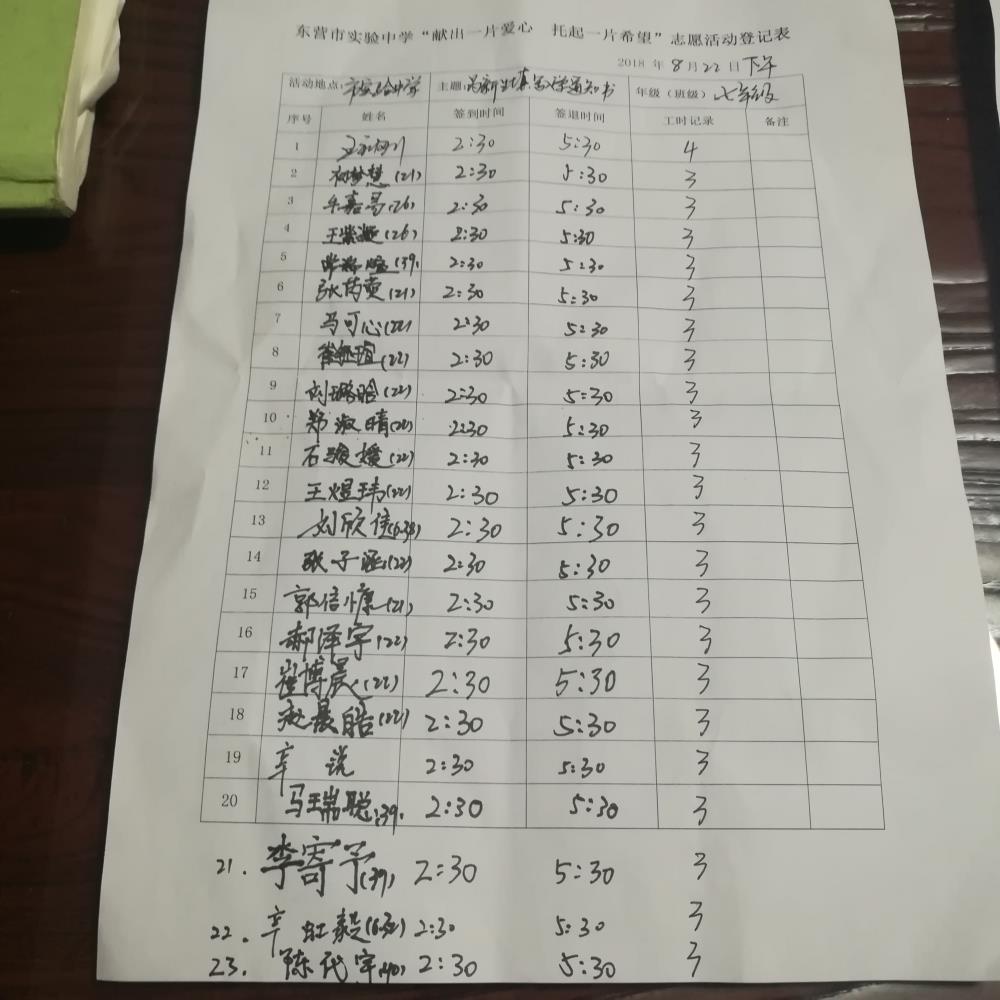 东营市实验中学“献出一片爱心 托起一片希望”志愿活动登记表
2018 年 8 月 22 日 下午
活动地点: 市实验中学 主题: 为新生填写入学通知书 年级（班级） 七年级
序号 姓名 签到时间 签退时间 工时记录 备注
1 2:30 5:30 4
2 梦慧(21) 2:30 5:30 3
3 (26) 2:30 5:30 3
4 王紫凝(26) 2:30 5:30 3
5 (39) 2:30 5:30 3
6 张芮萸(21) 2:30 5:30 3
7 马可心(22) 2:30 5:30 3
8 崔钰瑄(22) 2:30 5:30 3
9 刘璐晗(22) 2:30 5:30 3
10 郑淑晴(22) 2:30 5:30 3
11 石骏媛(22) 2:30 5:30 3
12 王煜玮(22) 2:30 5:30 3
13 刘欣倩 2:30 5:30 3
14 张子涵(22) 2:30 5:30 3
15 郭倍慷(21) 2:30 5:30 3
16 郝泽宇(22) 2:30 5:30 3
17 崔博晨(22) 2:30 5:30 3
18 赵晨皓(22) 2:30 5:30 3
19 辛说 2:30 5:30 3
20 马瑞聪(39) 2:30 5:30 3
21. 李寄予(39) 2:30 5:30 3
22. 辛虹毅 2:30 5:30 3
23. 陈代宇(40) 2:30 5:30 3